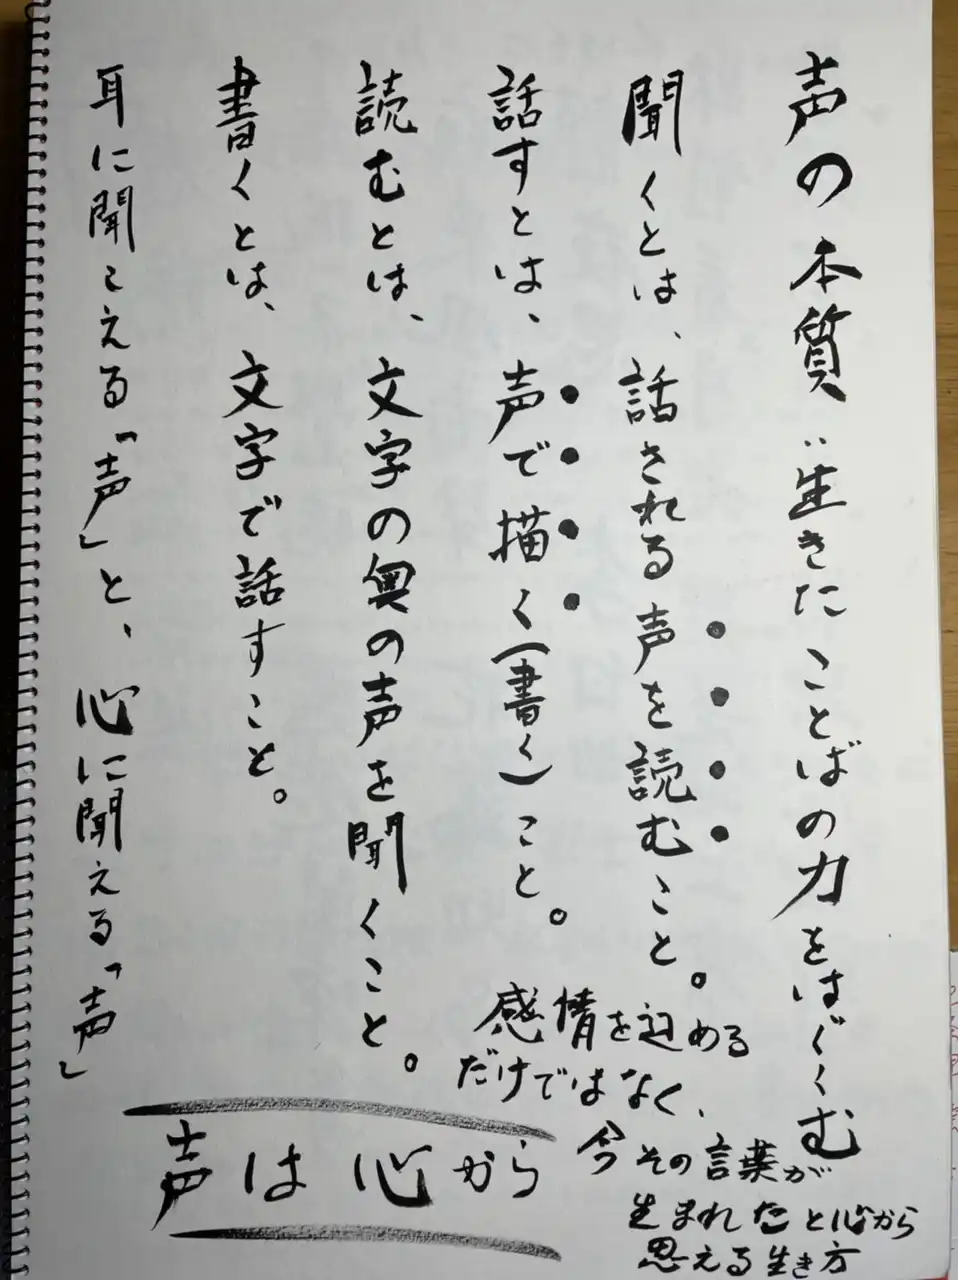 声の本質:生きたことばの力をはぐくむ
聞くとは、話される声を読むこと。
話すとは、声で描く(書く)こと。
読むとは、文字の奥の声を聞くこと。
書くとは、文字で話すこと。
耳に聞こえる「声」と、心に聞える「声」
感情を込める
だけではなく、
今その言葉が
生まれたと心から
思える生き方
声は心から